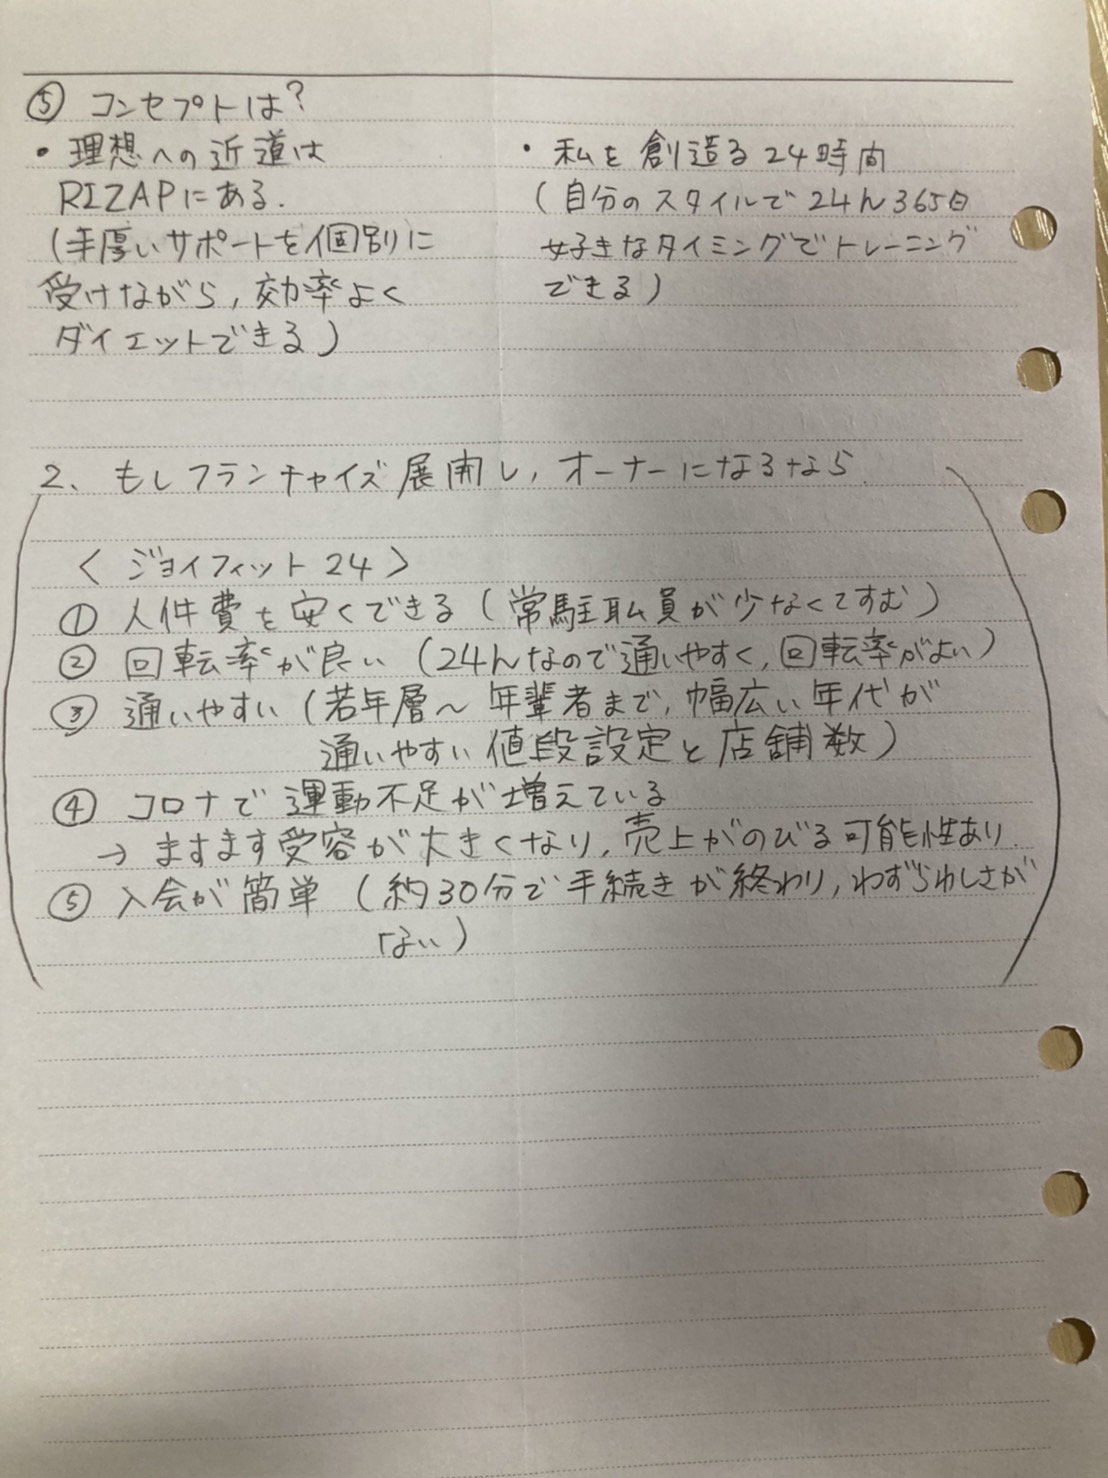 ⑤ コンセプトは?
・理想への近道は
RIZAPにある.
(手厚いサポートを個別に
受けながら, 効率よく
ダイエットできる)
・私を創造る24時間
(自分のスタイルで24h365日
好きなタイミングでトレーニング
できる)
2、もしフランチャイズ展開し, オーナーになるなら.
〈 ジョイフィット24 〉
① 人件費を安くできる (常駐職員が少なくてすむ)
② 回転率が良い (24hなので通いやすく, 回転率がよい)
③ 通いやすい (若年層〜年輩者まで, 幅広い年代が
通いやすい値段設定と店舗数)
④ コロナで運動不足が増えている
→ ますます受容が大きくなり, 売上がのびる可能性あり.
⑤ 入会が簡単 (約30分で手続きが終わり, わずらわしさが
ない)